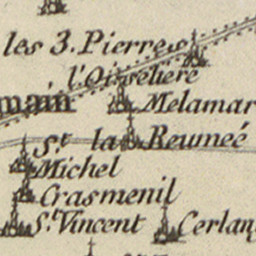 les 3. Pierres
l'Oiseliere
main
Melamar
la Reumeé
St.
Michel
Crasmenil
St. Vincent
Cerlan